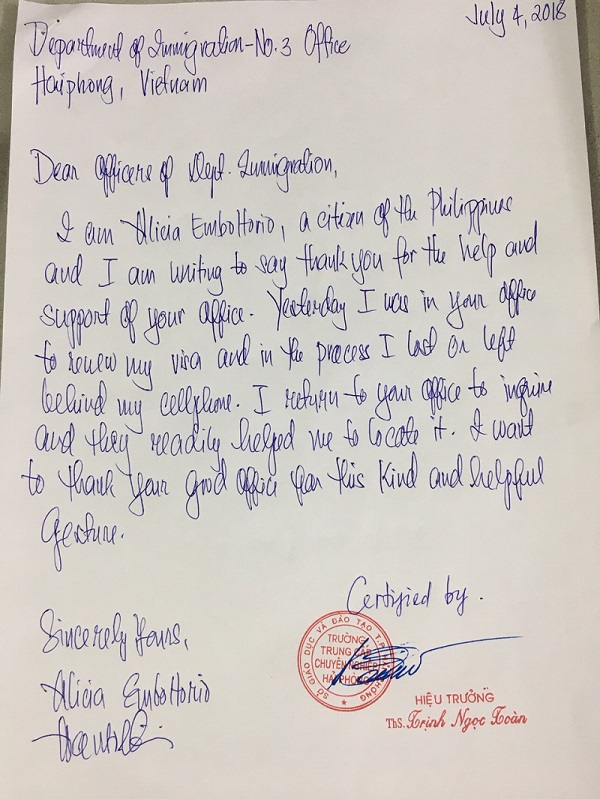 July 4, 2018
Department of Immigration-No. 3 Office
Haiphong, Vietnam
Dear Officers of Dept. Immigration,
I am Alicia Embottorio, a citizen of the Philippines
and I am writing to say thank you for the help and
support of your office. Yesterday I was in your office
to renew my visa and in the process I lost or left
behind my cellphone. I return to your office to inquire
and they readily helped me to locate it. I want
to thank your good office for this kind and helpful
gesture.
Certified by.
Sincerely Yours,
Alicia Embottorio
SỞ GIÁO DỤC VÀ ĐÀO TẠO T.P HẢI PHÒNG
TRƯỜNG
TRUNG CẤP
CHUYÊN NGHIỆP
HẢI PHÒNG
HIỆU TRƯỞNG
ThS. Trịnh Ngọc Toàn